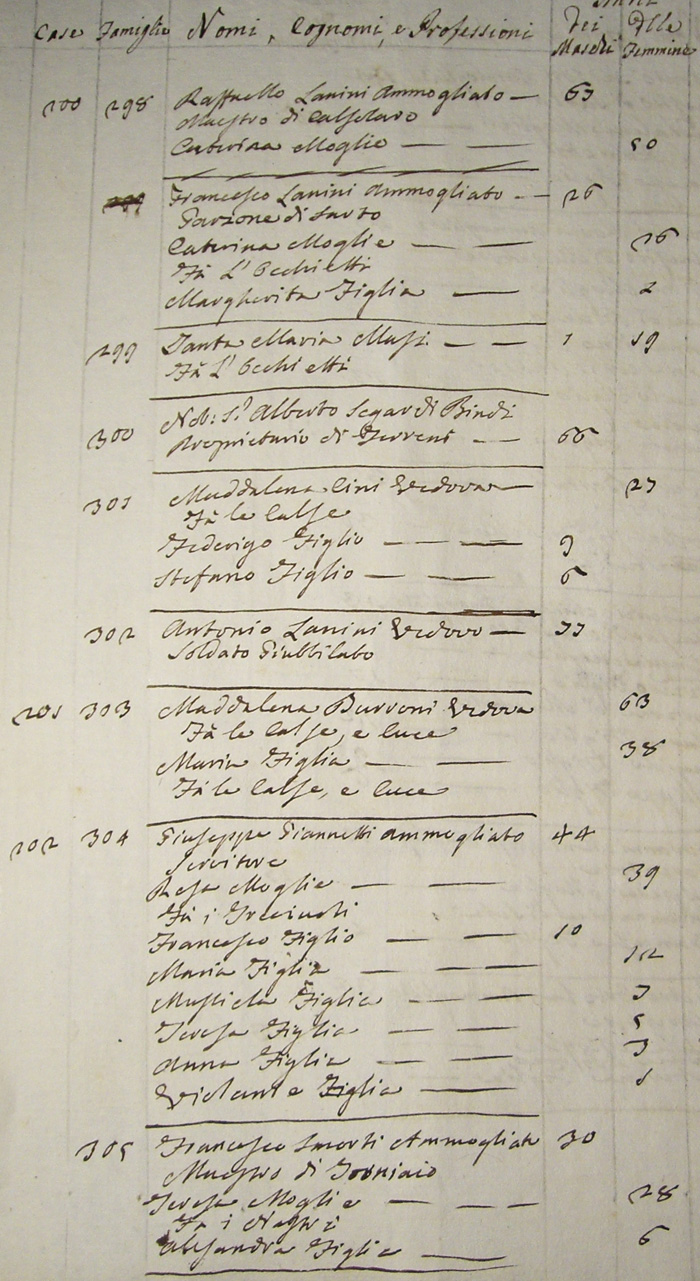 Anni
Case Famiglie Nomi, Cognomi, e Professioni Dei Maschi Delle Femmine
200 298 Raffaello Lanini Ammogliato — 63
Maestro di Calzolaro
Caterina Moglie — — 50
Francesco Lanini Ammogliato — 26
Garzone di Sarto
Caterina Moglie — — 26
Fà L'Occhietti
Margherita Figlia — 2
299 Santa Maria Masi — — 1 19
Fà L'Occhietti
300 Nob: S.r Alberto Segardi Bindi
Proprietario di Terreni — — 66
301 Maddalena Cini Vedova — 27
Fà le Calse
Federigo Figlio — — — 9
Stefano Figlio — — — 6
302 Antonio Lanini Vedovo — 77
Soldato Giubbilato
201 303 Maddalena Burroni Vedova 63
Fà le Calse, e Cuce
Maria Figlia — — 38
Fà le Calse, e Cuce
202 304 Giuseppe Giannetti Ammogliato 44
Servitore
Rosa Moglie — — 39
Fà i
Francesco Figlio — — 10
Maria Figlia — — 12
Figlia — — 7
Teresa Figlia — — 5
Anna Figlia — — 3
Violante Figlia — 1
305 Francesco Smorti Ammogliato 30
Maestro di Torniaio
Teresa Moglie — — — 28
Fa i Nastri
Alessandra Figlia — 6